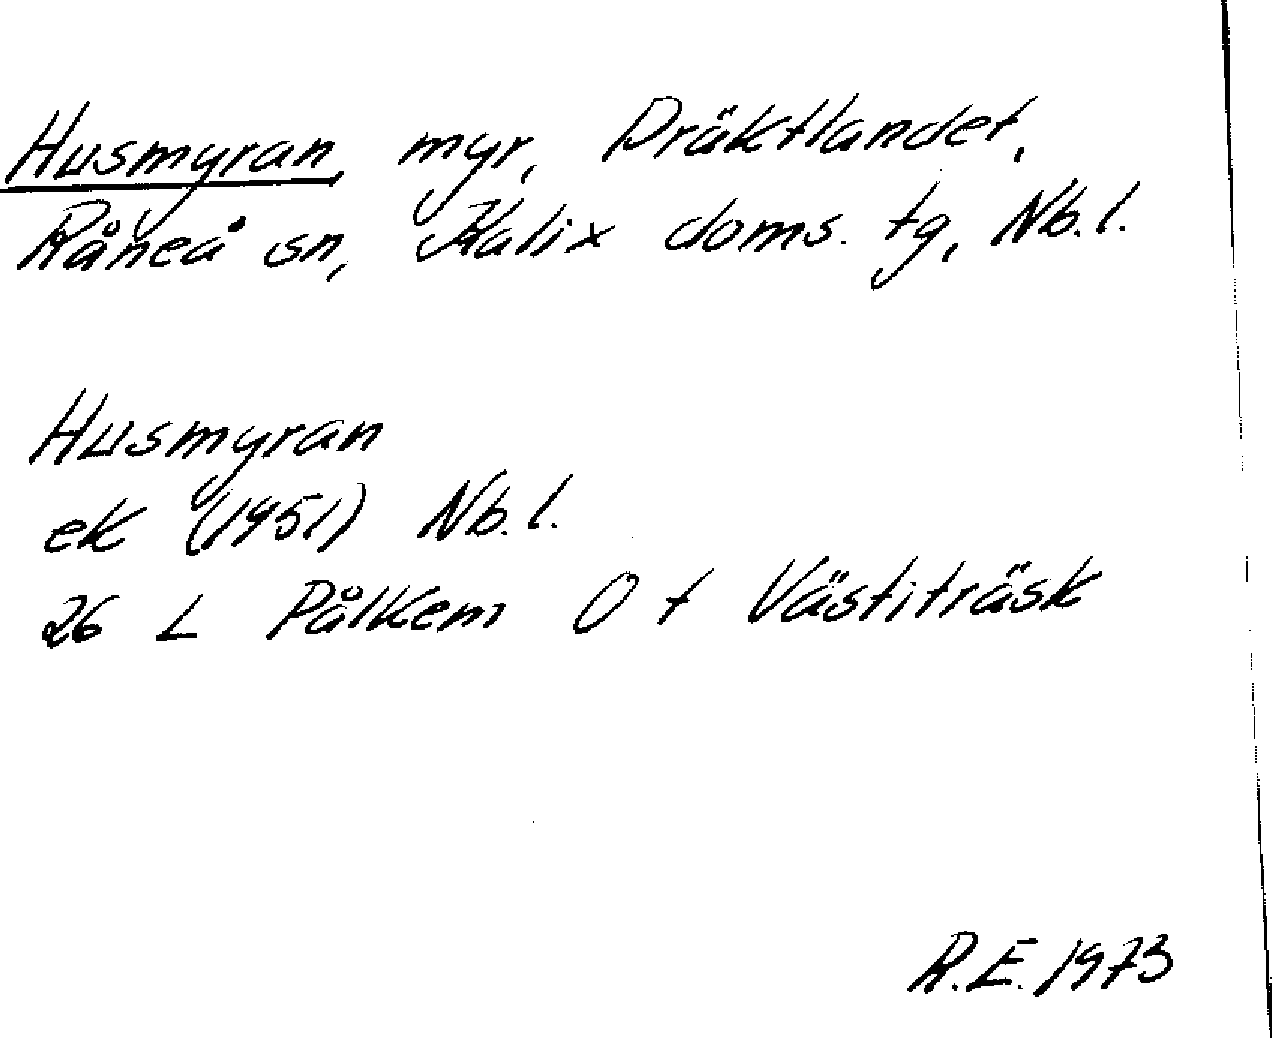 Husmyran, myr, Präktlandet,
Råneå sn, Kalix doms. tg, Nb.l.
Husmyran
ek (1951) Nb.l.
26 L Pålkem O t Västiträsk
R.E. 1973